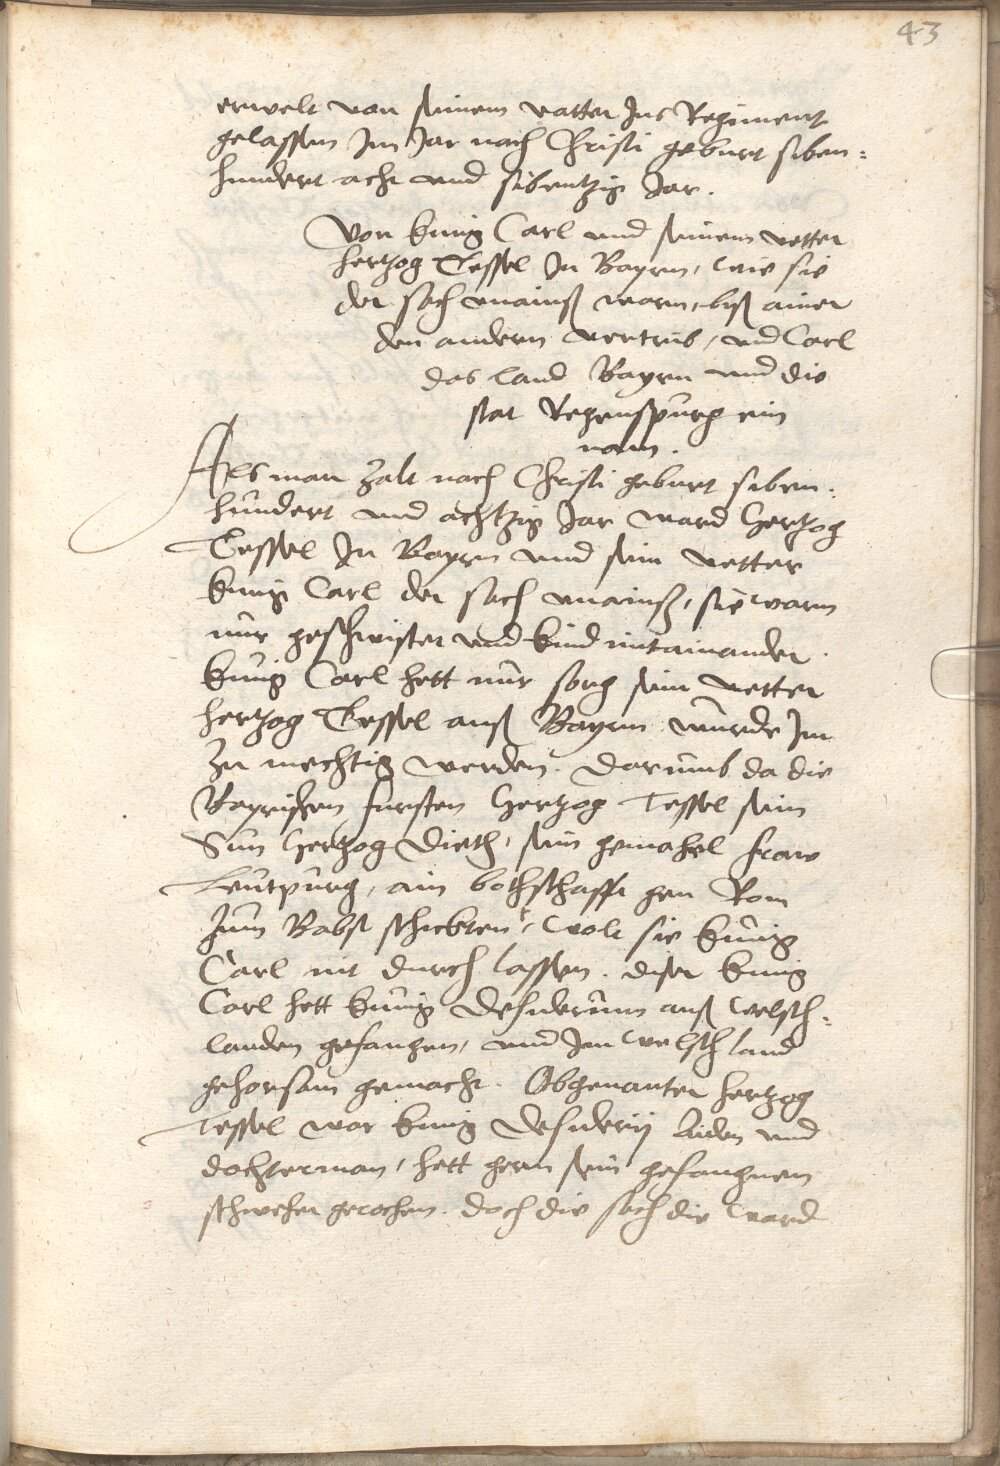 43
erwelt von seinem vatter Ins Regiment
gelassen Im Jar nach Christi geburt siben=
hundert acht und sibentzig Jar.
Von kunig Carl und seinem vetter
hertzog Tessel In Bayrn, wie sie
der sach unainß warn, biß ainer
den andern vertrib, und Carl
das land Bayrn und die
stat Regenspurg ein
nam.
Als man zalt nach Christi geburt siben=
hundert und achtzig Jar ward Hertzog
Tessel In Bayrn und sein vetter
kunig Carl der sach unainß, sie warn
nur geschwister und kind mitainander.
kunig Carl hett nur sorg sein vetter
hertzog Tessel auß Bayrn wurde Im
zu mechtig werden. Darumb da die
Bayrischen fursten Hertzog Tessel sein
Sun Hertzog Dieth, sein gemahel fraw
Leutpurg, ain bothschafft gen Rom
zum Babst schickten, wolt sie kunig
Carl nit durch lassen. diser kunig
Carl hett kunig Desiderium auß welsch=
landen gefangen, und Im welschland
gehorsam gemacht. Obgenanter hertzog
Tessel war kunig Desiderij Aiden und
dochterman, hett gern sein gefangnen
schweher gerochen. doch die sach die ward